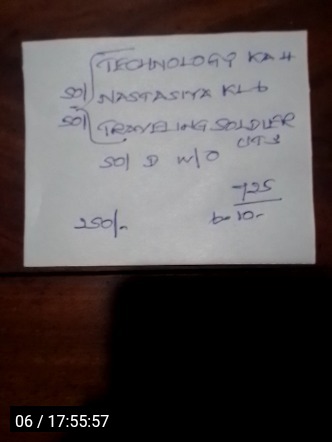 TECHNOLOGY KA 4
50/ NASTASIYA KL 6
50/ TRAVELING SOLDIER
CTS
50/ D W/O
-125
250/- b- 10-
06 / 17:55:57